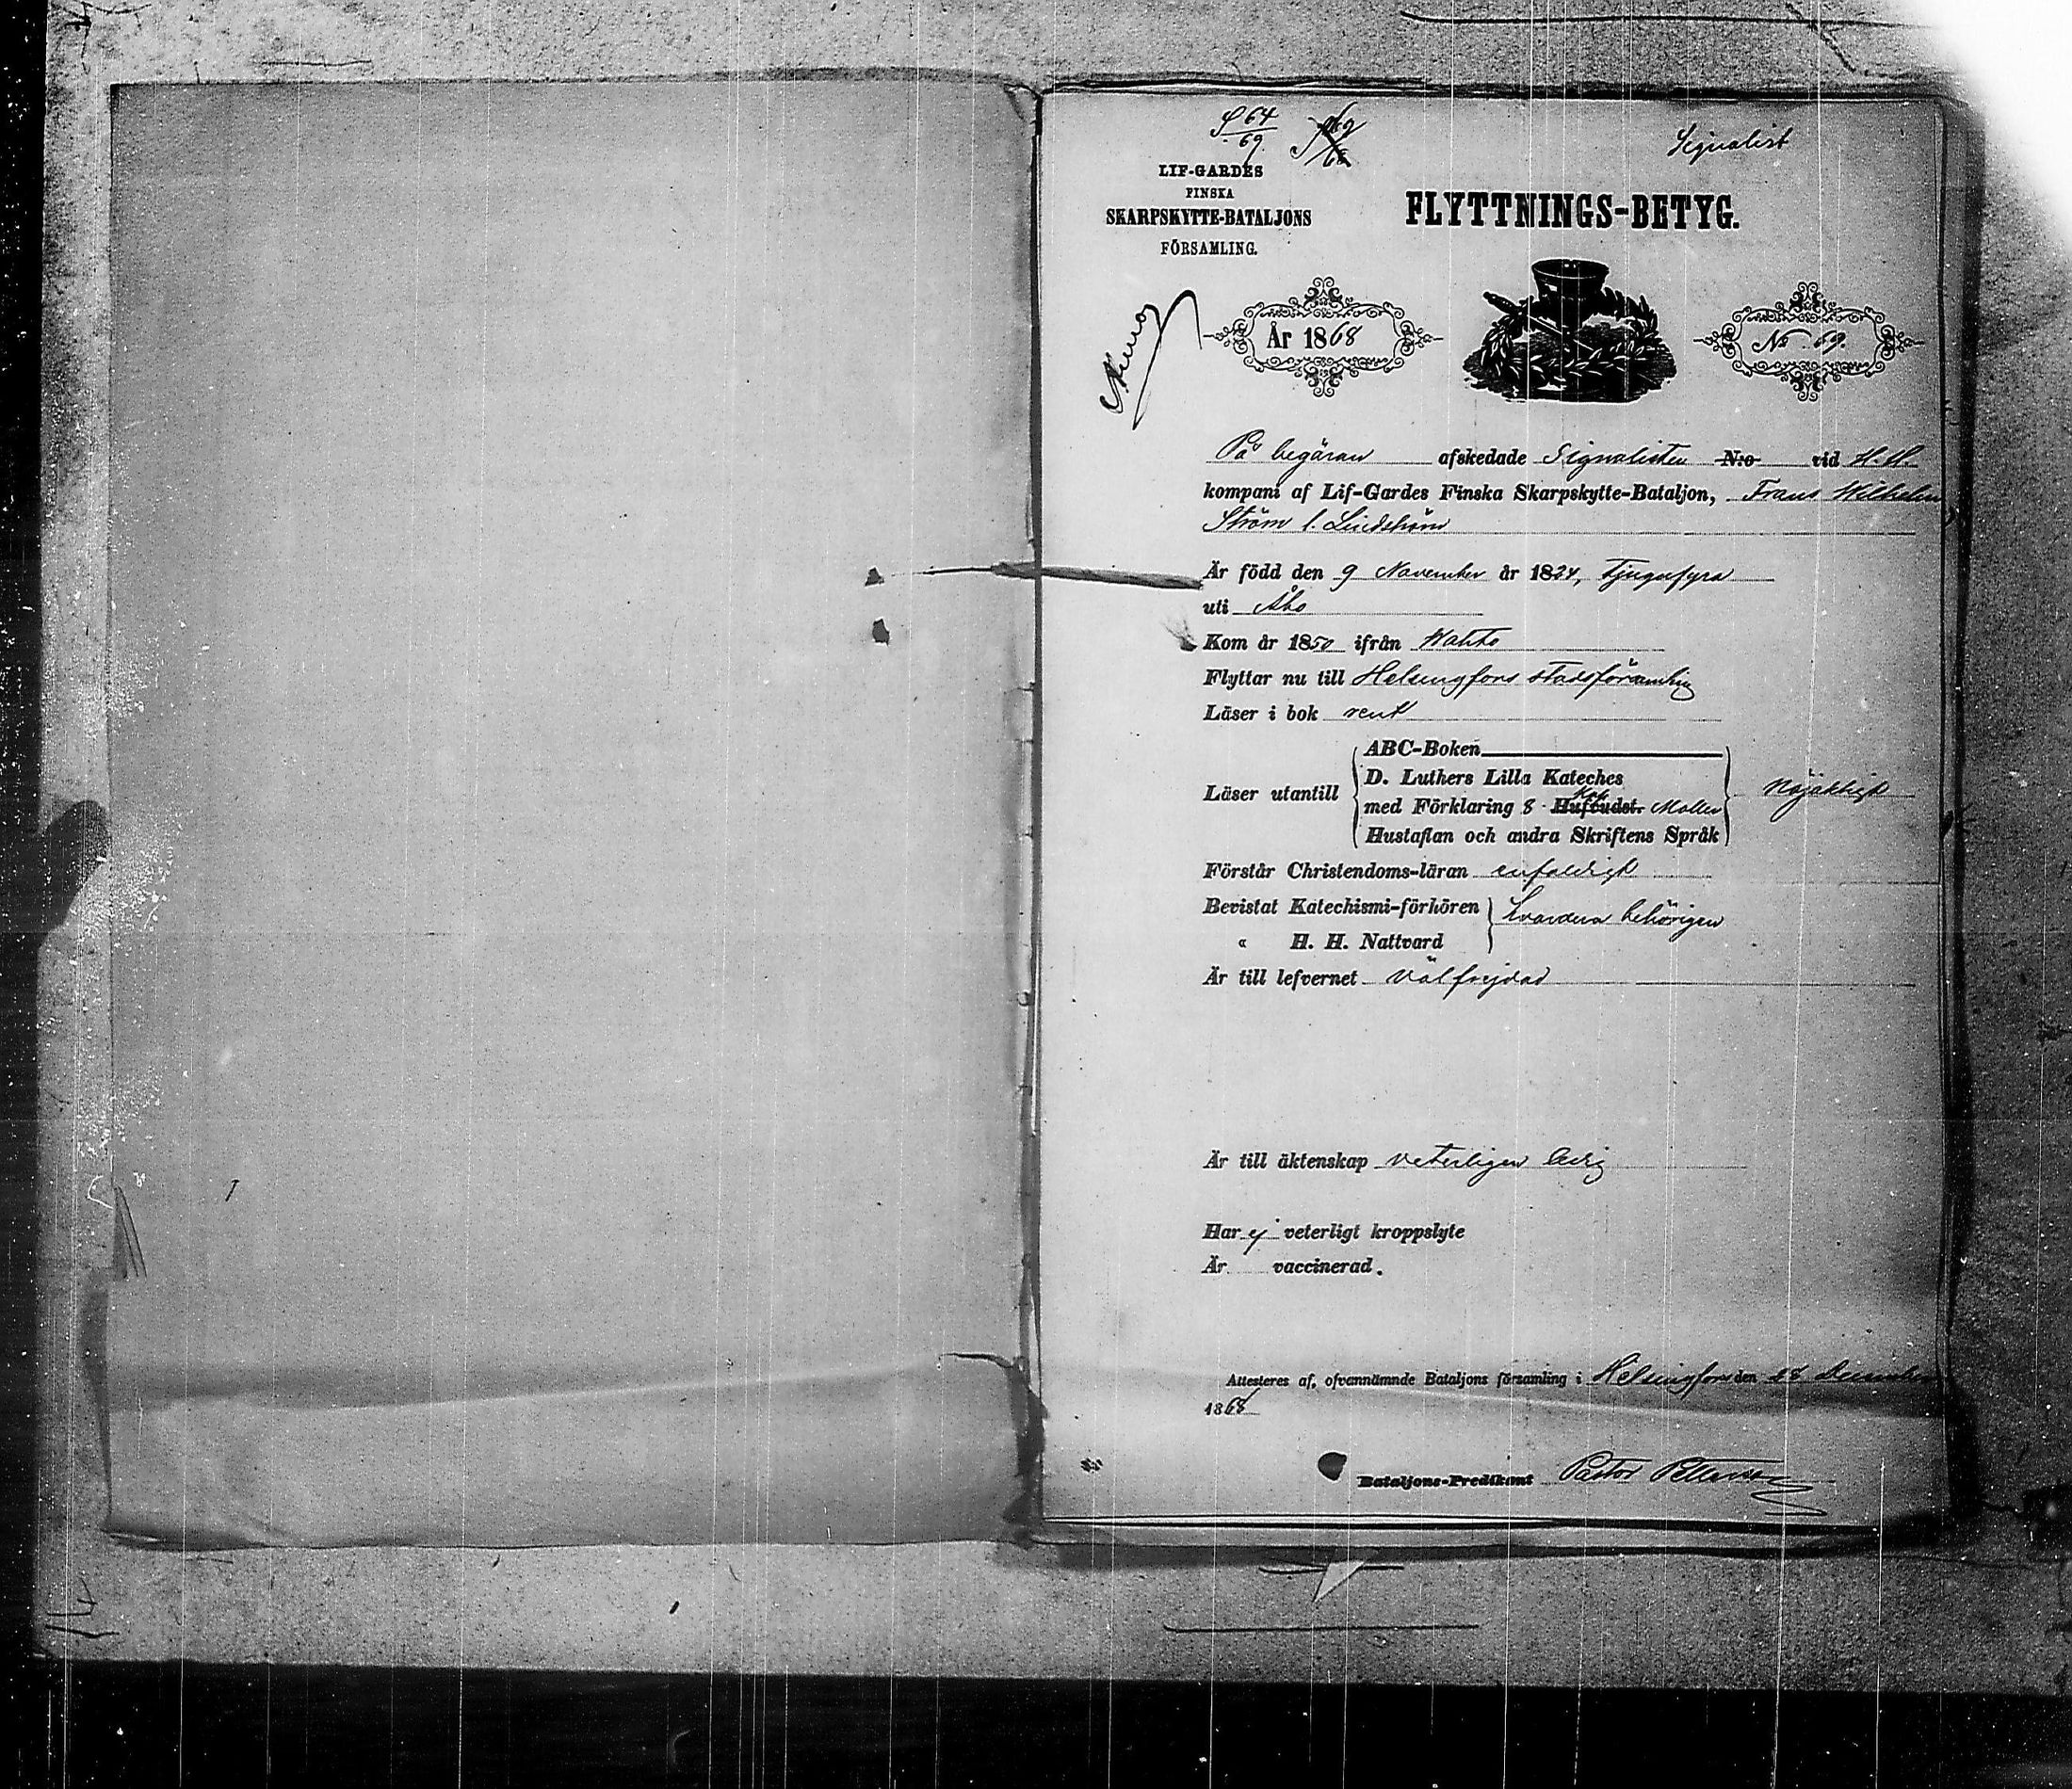 S 64
69
Signalist
LIF-GARDES
FINSKA
SKARPSKYTTE-BATALJONS
FÖRSAMLING.
FLYTTNINGS-BETYG.
År 1868
No 69.
På begäran afskedade Signalisten N:o vid H.H.
kompani af Lif-Gardes Finska Skarpskytte-Bataljon, Frans Wilhelm
Ström l. Lindström
Är född den 9 November år 1824, tjugufyra
uti Åbo
Kom år 1850 ifrån
Flyttar nu till Helsingfors stadsförsamling
Läser i bok rent
ABC-Boken
D. Luthers Lilla Kateches
Läser utantill med Förklaring 8 Hufbudst. Nöjaktigt
Hustaflan och andra Skriftens Språk
Förstår Christendoms-läran enfaldigt
Bevistat Katechismi-förhören hvardera behörigen
« H. H. Nattvard
Är till lefvernet välfrejdad
Är till äktenskap veterligen ledig
Har ej veterligt kroppslyte
Är vaccinerad.
Attesteras af, ofvannämnde Bataljons församling i Helsingfors den 28 December
1868
Bataljons-Predikant Pastor